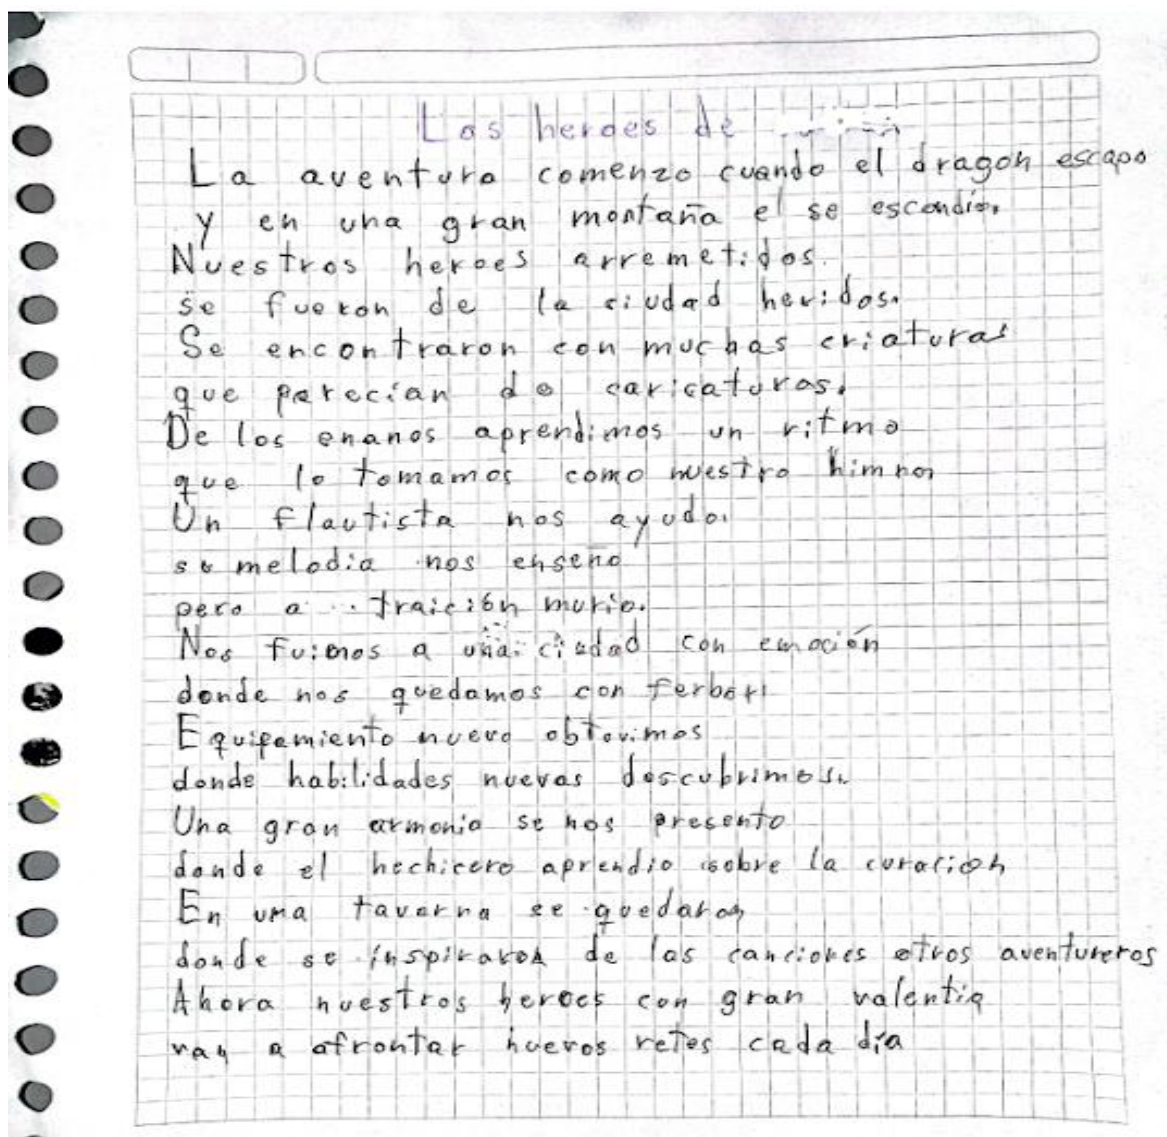 Los heroes de
La aventura comenzo cuando el dragon escapo
y en una gran montaña el se escondio.
Nuestros heroes arremetidos.
se fueron de la ciudad heridos.
Se encontraron con muchas criaturas
que parecían de caricaturas.
De los enanos aprendimos un ritmo
que lo tomamos como nuestro himno.
Un flautista nos ayudo.
su melodia nos enseño
pero a traición murio.
Nos fuimos a una ciudad con emoción
donde nos quedamos con
Equipamiento nuevo obtuvimos
donde habilidades nuevas descubrimos.
Una gran armonia se nos presento
donde el hechicero aprendio sobre la curacion
En una taverna se quedaron
donde se inspiraron de las canciones otros aventureros
Ahora nuestros heroes con gran valentia
van a afrontar nuevos retos cada día